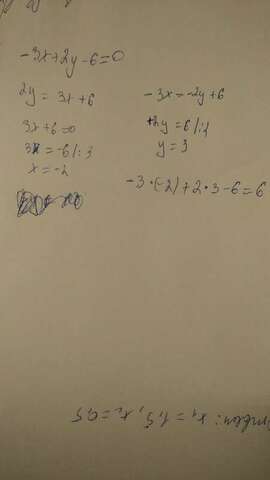 -3x+2y-6=0
2y = 3x+6
3x+6=0
3x = -6/:3
x = -2
-3x=-2y+6
+2y=6/:2
y=3
-3·(-2)+2·3-6=6
x₁=1,5, x₂=0,5